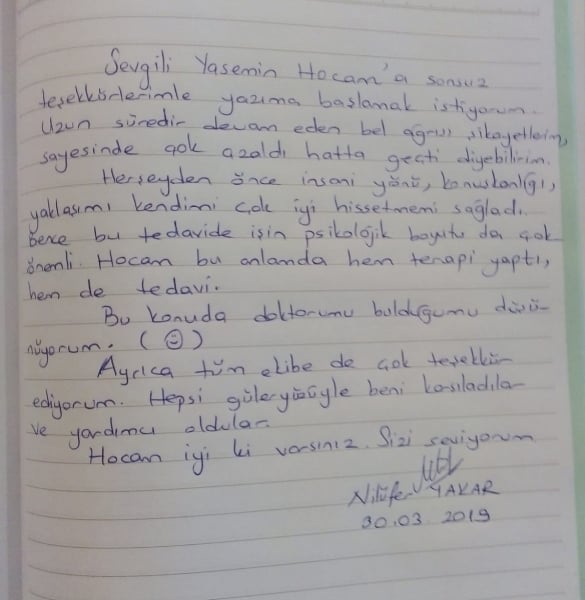 Sevgili Yasemin Hocam'a sonsuz
teşekkürlerimle yazıma başlamak istiyorum.
Uzun süredir devam eden bel ağrısı şikayetlerim,
sayesinde çok azaldı hatta geçti diyebilirim.
Herşeyden önce insani yönü, konuşkanlığı,
yaklaşımı kendimi çok iyi hissetmemi sağladı.
Bence bu tedavide işin psikolojik boyutu da çok
önemli. Hocam bu anlamda hem terapi yaptı,
hem de tedavi.
Bu konuda doktorumu bulduğumu düşü-
nüyorum. (☺)
Ayrıca tüm ekibe de çok teşekkür
ediyorum. Hepsi güleryüzüyle beni karşıladılar
ve yardımcı oldular.
Hocam iyi ki varsınız. Sizi seviyorum
Nilüfer YAKAR
30.03.2019